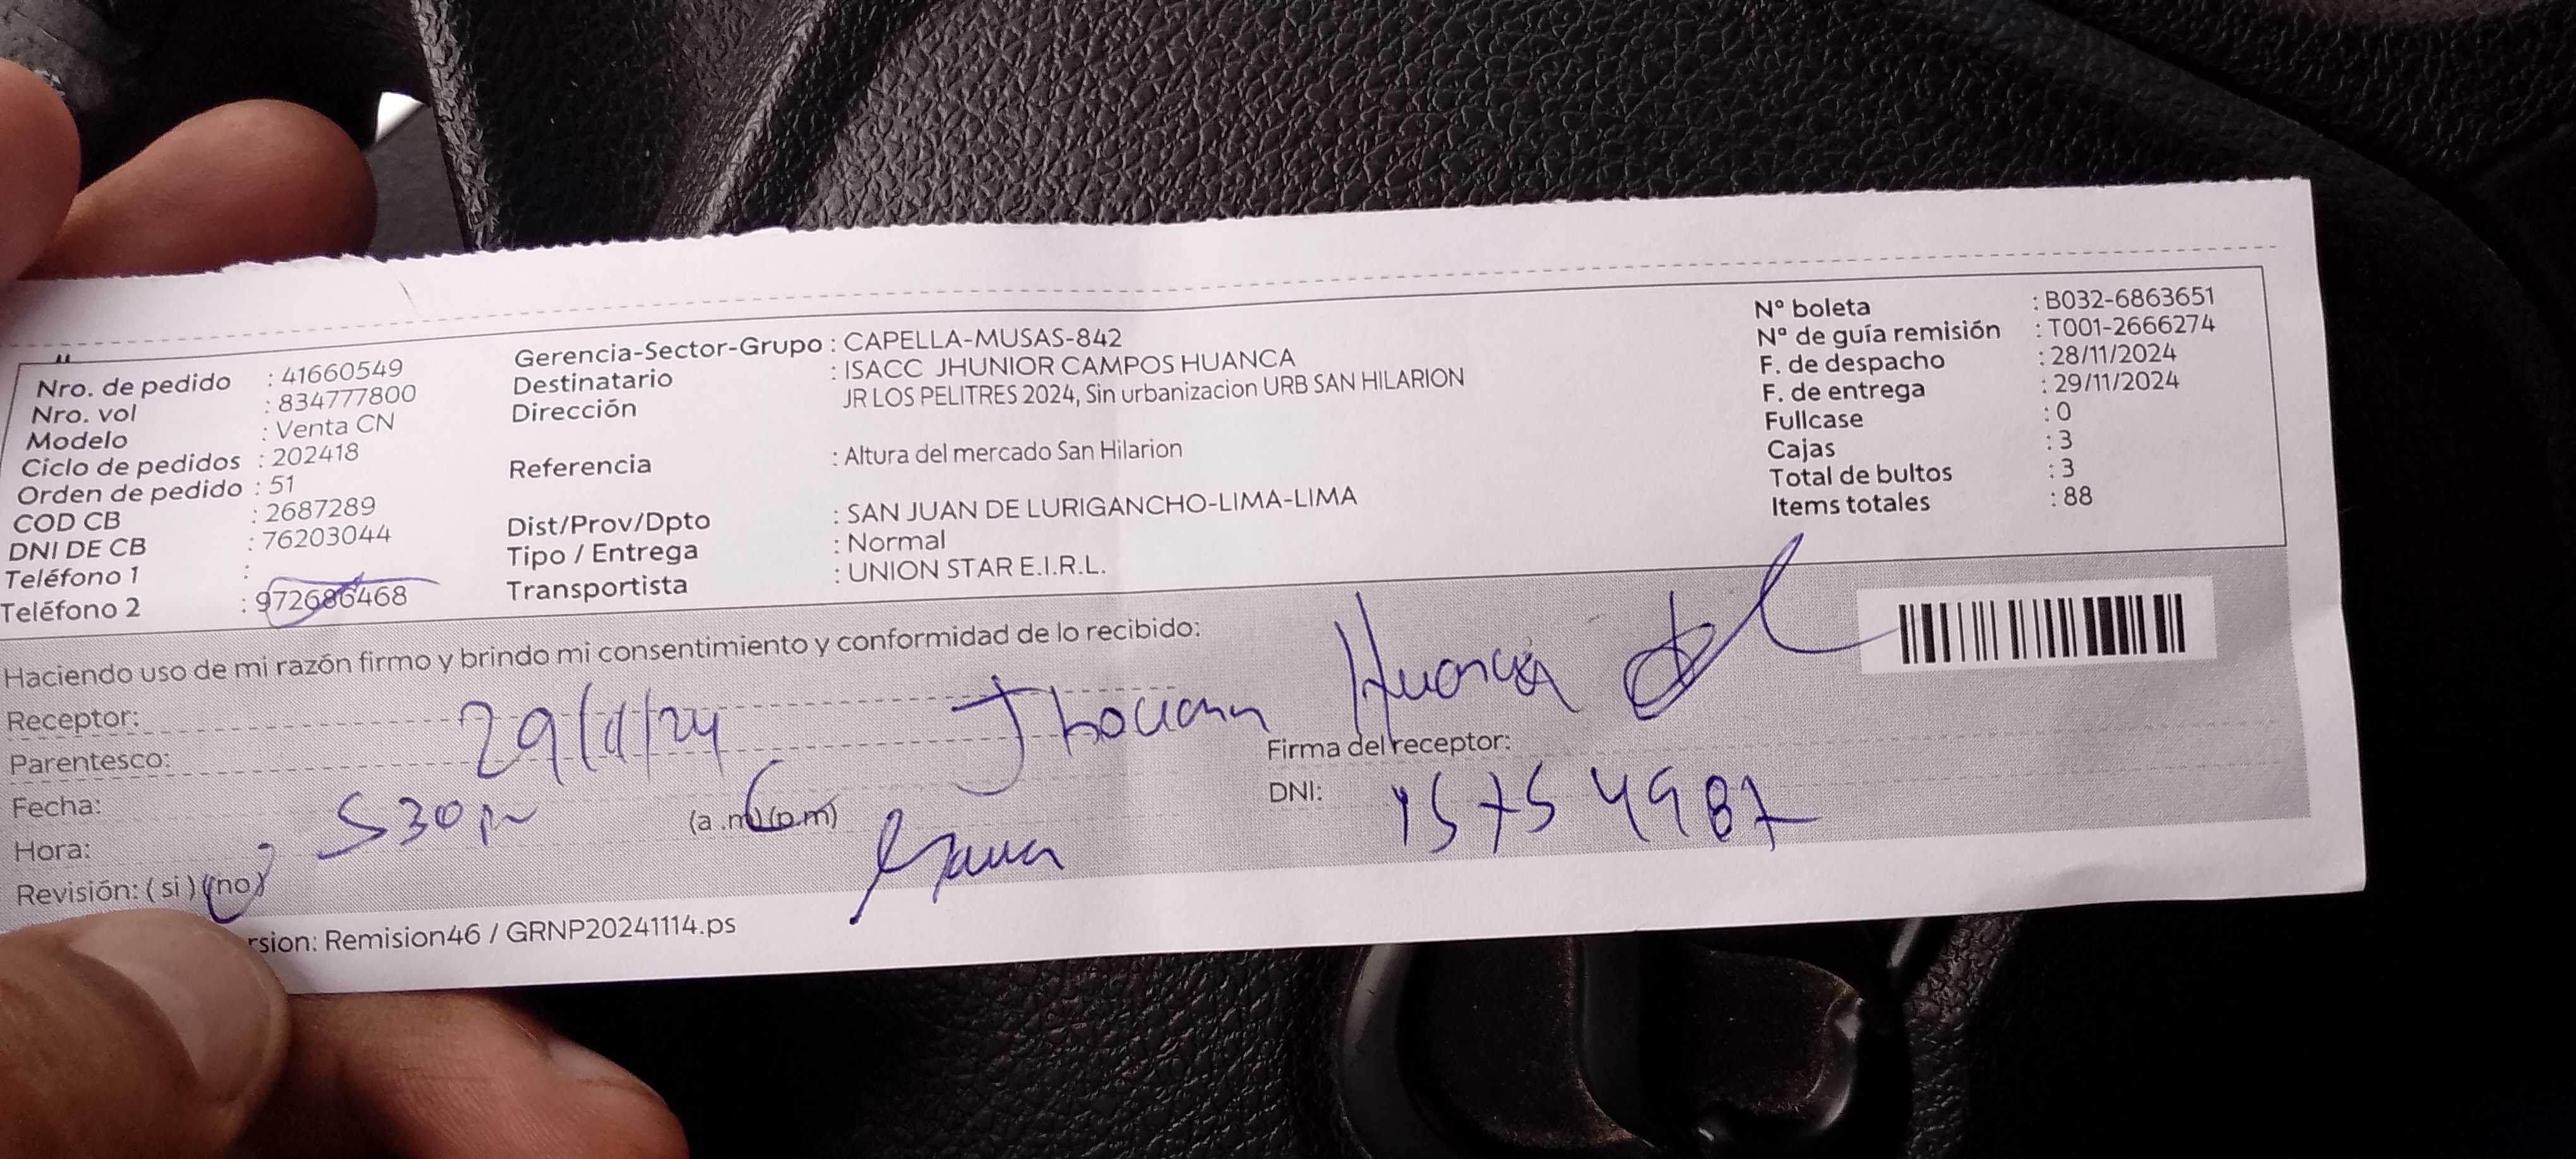 Nro. de pedido : 41660549
Nro. vol : 834777800
Modelo : Venta CN
Ciclo de pedidos : 202418
Orden de pedido : 51
COD CB : 2687289
DNI DE CB : 76203044
Teléfono 1 :
Teléfono 2 : 972686468
Gerencia-Sector-Grupo : CAPELLA-MUSAS-842
Destinatario : ISACC JHUNIOR CAMPOS HUANCA
Dirección JR LOS PELITRES 2024, Sin urbanizacion URB SAN HILARION
Referencia : Altura del mercado San Hilarion
Dist/Prov/Dpto : SAN JUAN DE LURIGANCHO-LIMA-LIMA
Tipo / Entrega : Normal
Transportista : UNION STAR E.I.R.L.
Nº boleta : B032-6863651
Nº de guía remisión : T001-2666274
F. de despacho : 28/11/2024
F. de entrega : 29/11/2024
Fullcase : 0
Cajas : 3
Total de bultos : 3
Items totales : 88
Haciendo uso de mi razón firmo y brindo mi consentimiento y conformidad de lo recibido:
Receptor: Huanca
Parentesco: 29/11/24
Fecha:
Hora: 530 pm (a.m) (p.m)
Revisión: (si) (no)
Firma del receptor:
DNI:
rsion: Remision46 / GRNP20241114.ps